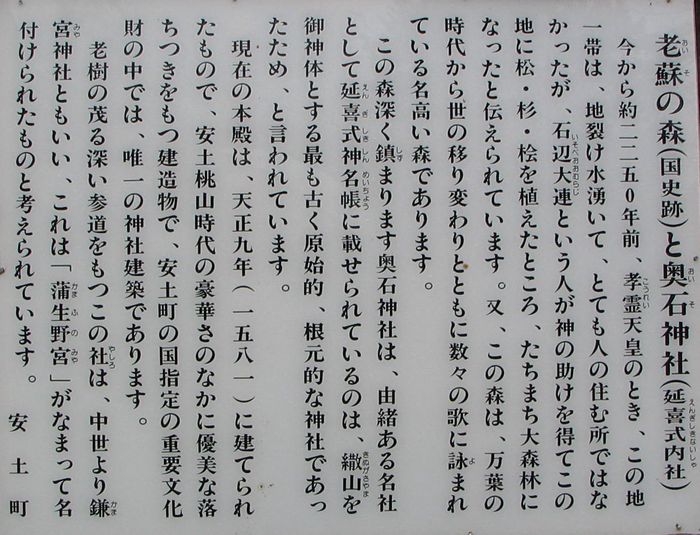 老蘇の森(国史跡)と奥石神社(延喜式内社)
今から約二二五0年前、孝霊天皇のとき、この地
一帯は、地裂け水湧いて、とても人の住む所ではな
かったが、石辺大連という人が神の助けを得てこの
地に松・杉・桧を植えたところ、たちまち大森林に
なったと伝えられています。又、この森は、万葉の
時代から世の移り変わりとともに数々の歌に詠まれ
ている名高い森であります。
この森深く鎮まります奥石神社は、由緒ある名社
として延喜式神名帳に載せられているのは、繖山を
御神体とする最も古く原始的、根元的な神社であっ
たため、と言われています。
現在の本殿は、天正九年(一五八一)に建てられ
たもので、安土桃山時代の豪華さのなかに優美な落
ちつきをもつ建造物で、安土町の国指定の重要文化
財の中では、唯一の神社建築であります。
老樹の茂る深い参道をもつこの社は、中世より鎌
宮神社ともいい、これは「蒲生野宮」がなまって名
付けられたものと考えられています。
安土町